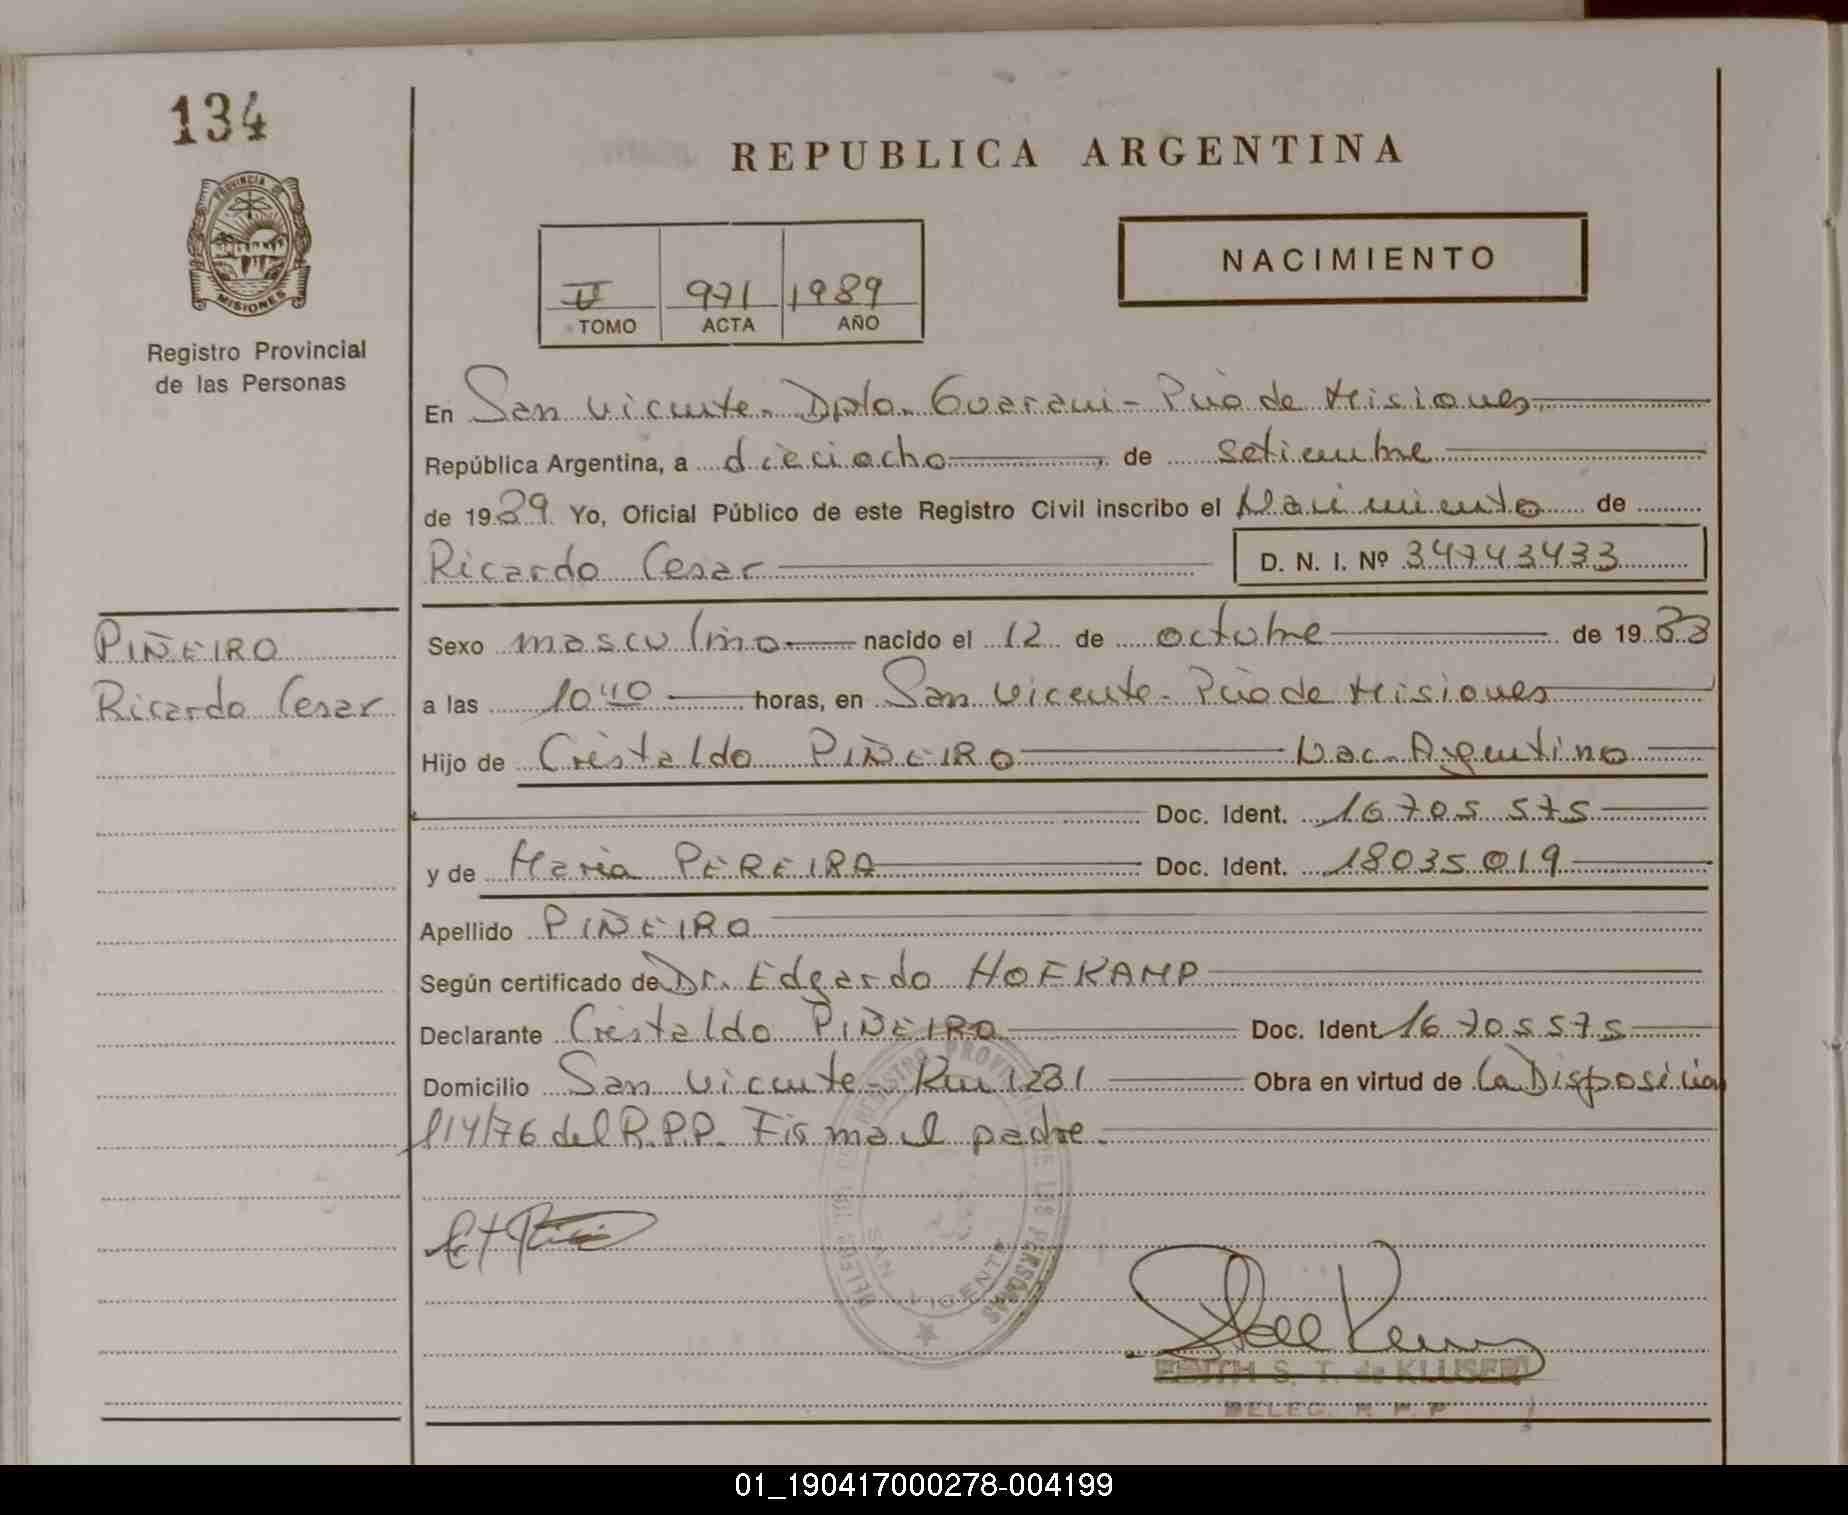 134
REPUBLICA ARGENTINA
PROVINCIA DE
MISIONES
Registro Provincial
de las Personas
NACIMIENTO
II 971 1989
TOMO ACTA AÑO
En San Vicente - Dpto. Guarani - Pcia de Misiones
República Argentina, a dieciocho de setiembre
de 1989 Yo, Oficial Público de este Registro Civil inscribo el Nacimiento de
Ricardo Cesar D. N. I. Nº 34743433
PIÑEIRO
Ricardo Cesar
Sexo masculino nacido el 12 de octubre de 1988
a las 10 40 horas, en San Vicente - Pcia de Misiones
Hijo de Cristaldo PIÑEIRO Nac. Argentino
Doc. Ident. 16 705 575
y de Maria PEREIRA Doc. Ident. 18035019
Apellido PIÑEIRO
Según certificado de Dr. Edgardo HOFKAMP
Declarante Cristaldo PIÑEIRO Doc. Ident 16 705575
Domicilio San Vicente - Km 1281 Obra en virtud de La Disposición
114/76 del R.P.P. Firma el padre.
REGISTRO PROVINCIAL DE LAS PERSONAS
SAN VICENTE
EDITH S. T. de KLUSENER
DELEG. R. P. P
01_190417000278-004199